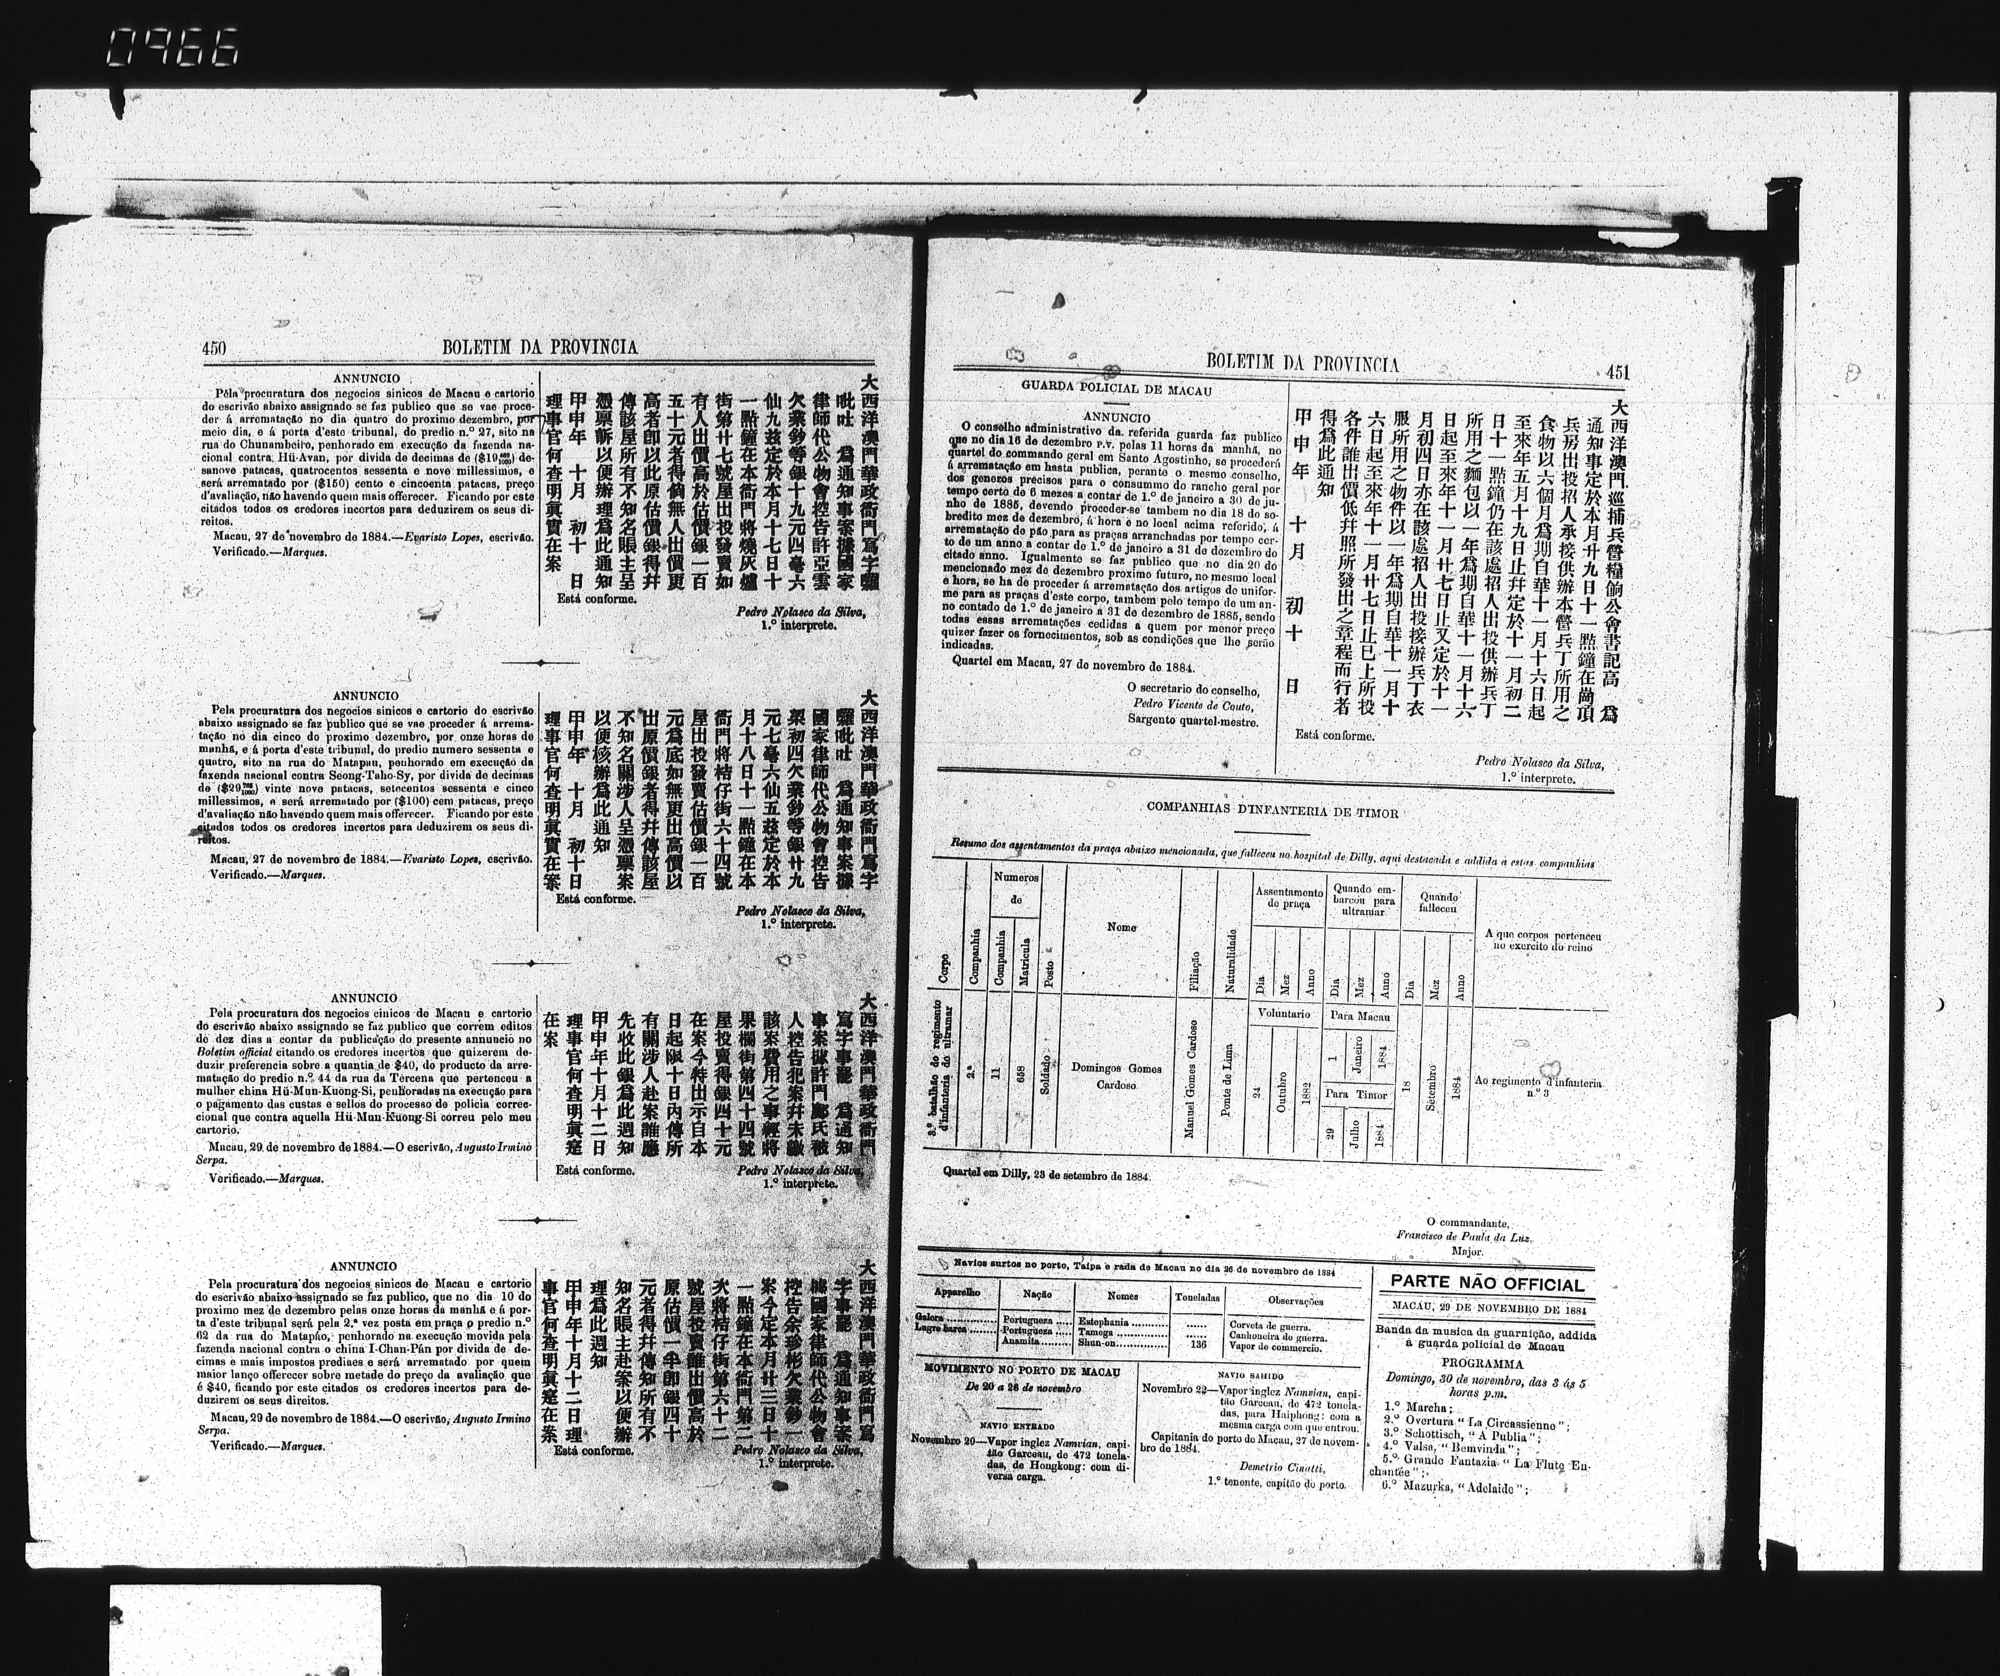 0966
450
BOLETIM DA PROVINCIA
ANNUNCIO
Pela procuratura dos negocios sinicos de Macau e cartorio
do escrivão abaixo assignado se faz publico que se vae proce-
der á arrematação no dia quatro do proximo dezembro, por
meio dia, e á porta d'este tribunal, do predio n.º 27, sito na
rua do Chunambeiro, penhorado em execução da fazenda na-
cional contra Hü-Avan, por divida de decimas de ($19 469/1000) de-
sanove patacas, quatrocentos sessenta e nove millessimos, e
será arrematado por ($150) cento e cincoenta patacas, preço
d'avaliação, não havendo quem mais offerecer. Ficando por este
citados todos os credores incertos para deduzirem os seus di-
reitos.
Macau, 27 de novembro de 1884.—Evaristo Lopes, escrivão.
Verificado.—Marques.
大西洋澳門華政衙門寫字囉
吡吐 爲通知事案據國家
律師代公物會控告許亞雲
欠業鈔等銀十九元四毫六
仙九茲定於本月十七日十
一點鐘在本衙門將燒灰爐
街第廿七號屋出投發賣如
有人出價高於估價銀一百
五十元者得倘無人出價更
高者卽以此原估價銀得幷
傳該屋所有不知名賬主呈
憑禀訴以便辦理爲此通知
甲申年 十月 初十 日
理事官何查明眞實在案
Está conforme.
Pedro Nolasco da Silva,
1.º interprete.
ANNUNCIO
Pela procuratura dos negocios sinicos e cartorio do escrivão
abaixo assignado se faz publico que se vae proceder á arrema-
tação no dia cinco do proximo dezembro, por onze horas de
manhã, e á porta d'este tribunal, do predio numero sessenta e
quatro, sito na rua do Matapau, penhorado em execução da
fazenda nacional contra Seong-Taho-Sy, por divida de decimas
de ($29 765/1000) vinte nove patacas, setecentos sessenta e cinco
millessimos, e será arrematado por ($100) cem patacas, preço
d'avaliação não havendo quem mais offerecer. Ficando por este
citados todos os credores incertos para deduzirem os seus di-
reitos.
Macau, 27 de novembro de 1884.—Evaristo Lopes, escrivão.
Verificado.—Marques.
大西洋澳門華政衙門寫字
囉吡吐 爲通知事案據
國家律師代公物會控告
梁初四欠業鈔等銀廿九
元七毫六仙五茲定於本
月十八日十一點鐘在本
衙門將桔仔街六十四號
屋出投發賣估價銀一百
元爲底如無更出高價以
出原價銀者得幷傳該屋
不知名關涉人呈憑禀案
以便核辦爲此通知
甲申年 十月 初十日
理事官何查明眞實在案
Está conforme.
Pedro Nolasco da Silva,
1.º interprete.
ANNUNCIO
Pela procuratura dos negocios cinicos de Macau e cartorio
do escrivão abaixo assignado se faz publico que correm editos
de dez dias a contar da publicação do presente annuncio no
Boletim official citando os credores incertos que quizerem de-
duzir preferencia sobre a quantia de $40, do producto da arre-
matação do predio n.º 44 da rua da Tercena que pertenceu a
mulher china Hü-Mun-Kuong-Si, penhoradas na execução para
o pagamento das custas e sellos do processo de policia correc-
cional que contra aquella Hü-Mun-Kuong-Si correu pelo meu
cartorio.
Macau, 29 de novembro de 1884.—O escrivão, Augusto Irmino
Serpa.
Verificado.—Marques.
大西洋澳門華政衙門
寫字事罷 爲通知
事案據許門鄺氏被
人控告犯案幷未繳
該案費用之事輕將
果欄街第四十四號
屋投賣得銀四十元
在案今特出示自本
日起限十日內傳所
有關涉人赴案誰應
先收此銀爲此週知
甲申年十月十二日
理事官何查明眞寔
在案
Está conforme.
Pedro Nolasco da Silva,
1.º interprete.
ANNUNCIO
Pela procuratura dos negocios sinicos de Macau e cartorio
do escrivão abaixo assignado se faz publico, que no dia 10 do
proximo mez de dezembro pelas onze horas da manhã e á por-
ta d'este tribunal será pela 2.ª vez posta em praça o predio n.º
62 da rua do Matapáo, penhorado na execução movida pela
fazenda nacional contra o china I-Chan-Pán por divida de de-
cimas e mais impostos prediaes e será arrematado por quem
maior lanço offerecer sobre metade do preço da avaliação que
é $40, ficando por este citados os credores incertos para de-
duzirem os seus direitos.
Macau, 29 de novembro de 1884.—O escrivão, Augusto Irmino
Serpa.
Verificado.—Marques.
大西洋澳門華政衙門寫
字事罷 爲通知事案
據國家律師代公物會
控告余珍彬欠業鈔一
案今定本月廿三日十
一點鐘在本衙門第二
次將桔仔街第六十二
號屋投賣誰出價高於
原估價一半卽銀四十
元者得幷傳知所有不
知名賬主赴案以便辦
理爲此週知
甲申年十月十二日理
事官何查明眞寔在案
Está conforme.
Pedro Nolasco da Silva,
1.º interprete.
BOLETIM DA PROVINCIA
451
GUARDA POLICIAL DE MACAU
ANNUNCIO
O conselho administrativo da referida guarda faz publico
que no dia 16 de dezembro p.v. pelas 11 horas da manhã, no
quartel do commando geral em Santo Agostinho, se procederá
á arrematação em hasta publica, perante o mesmo conselho,
dos generos precisos para o consummo do rancho geral por
tempo certo de 6 mezes a contar de 1.º de janeiro a 30 de ju-
nho de 1885, devendo proceder-se tambem no dia 18 do so-
bredito mez de dezembro, á hora e no local acima referido, á
arrematação de pão para as praças arranchadas por tempo cer-
to de um anno a contar de 1.º de janeiro a 31 de dezembro do
citado anno. Igualmente se faz publico que no dia 20 do
mencionado mez de dezembro proximo futuro, no mesmo local
e hora, se ha de proceder á arrematação dos artigos de unifor-
me para as praças d'este corpo, tambem pelo tempo de um an-
no contado de 1.º de janeiro a 31 de dezembro de 1885, sendo
todas essas arrematações cedidas a quem por menor preço
quizer fazer os fornecimentos, sob as condições que lhe serão
indicadas.
Quartel em Macau, 27 de novembro de 1884.
O secretario do conselho,
Pedro Vicente do Couto,
Sargento quartel-mestre.
大西洋澳門巡捕兵營糧餉公會書記高 爲
通知事定於本月廿九日十一點鐘在崗頂
兵房出投招人承接供辦本營兵丁所用之
食物以六個月爲期自華十一月十六日起
至來年五月十九日止幷定於十一月初二
日十一點鐘仍在該處招人出投供辦兵丁
所用之麵包以一年爲期自華十一月十六
日起至來年十一月廿七日止又定於十一
月初四日亦在該處招人出投接辦兵丁衣
服所用之物件以一年爲期自華十一月十
六日起至來年十一月廿七日止已上所投
各件誰出價低幷照所發出之章程而行者
得爲此通知
甲申年 十月 初十 日
Está conforme.
Pedro Nolasco da Silva,
1.º interprete.
COMPANHIAS D'INFANTERIA DE TIMOR
Resumo dos assentamentos da praça abaixo mencionada, que falleceu no hospital de Dilly, aqui destacada e addida a estas companhias
Corpo
Companhia
Numeros de
Companhia
Matricula
Posto
Nome
Filiação
Naturalidade
Assentamento de praça
Dia
Mez
Anno
Quando em-barcou para ultramar
Dia
Mez
Anno
Quando falleceu
Dia
Mez
Anno
A que corpos pertenceu no exercito do reino
3.º batalhão do regimento d'infanteria do ultramar
2.ª
11
658
Soldado
Domingos Gomes Cardoso
Manuel Gomes Cardoso
Ponte de Lima
Voluntario
24
Outubro
1882
Para Macau
1
Janeiro
1884
Para Timor
29
Julho
1884
18
Setembro
1884
Ao regimento d'infanteria n.º 3
Quartel em Dilly, 23 de setembro de 1884.
O commandante,
Francisco de Paula da Luz,
Major.
Navios surtos no porto, Taipa e rada de Macau no dia 26 de novembro de 1884
Apparelho	Nação	Nomes	Toneladas	Observações
Galera	Portugueza	Estephania	......	Corveta de guerra.
Lugre barca	Portugueza	Tamega	......	Canhoneira de guerra.
Anamita	Shun-on	136	Vapor de commercio.
MOVIMENTO NO PORTO DE MACAU
De 20 a 26 de novembro
NAVIO ENTRADO
Novembro 20—Vapor inglez Namvian, capi-
tão Garceau, de 472 tonela-
das, de Hongkong: com di-
versa carga.
NAVIO SAHIDO
Novembro 22—Vapor inglez Namvian, capi-
tão Garceau, de 472 tonela-
das, para Haiphong: com a
mesma carga com que entrou.
Capitania do porto de Macau, 27 de novem-
bro de 1884.
Demetrio Cinatti,
1.º tenente, capitão do porto.
PARTE NÃO OFFICIAL
MACAU, 29 DE NOVEMBRO DE 1884
Banda da musica da guarnição, addida
á guarda policial de Macau
PROGRAMMA
Domingo, 30 de novembro, das 3 ás 5
horas p.m.
1.º Marcha;
2.º Overtura "La Circassienne";
3.º Schottisch, "A Publia";
4.º Valsa, "Bemvinda";
5.º Grande Fantazia "La Flute En-
chantée";
6.º Mazurka, "Adelaide";